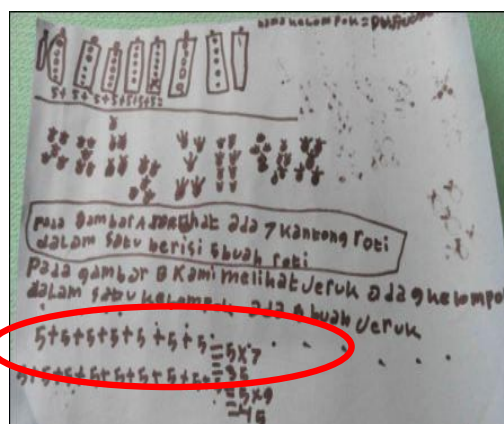 nama kelompok =
5+ 5+ 5+5+5+5+5=
pada gambar A terlihat ada 7 kantong roti
dalam satu berisi 5 buah roti
pada gambar B kami melihat Jeruk ada 9 kelompok
dalam satu kelompok ada 9 buah Jeruk
5+5+5+5+5+5+5=5x7
=35
5+5+5+5+5+5+5+5+5=
=5x9
=45